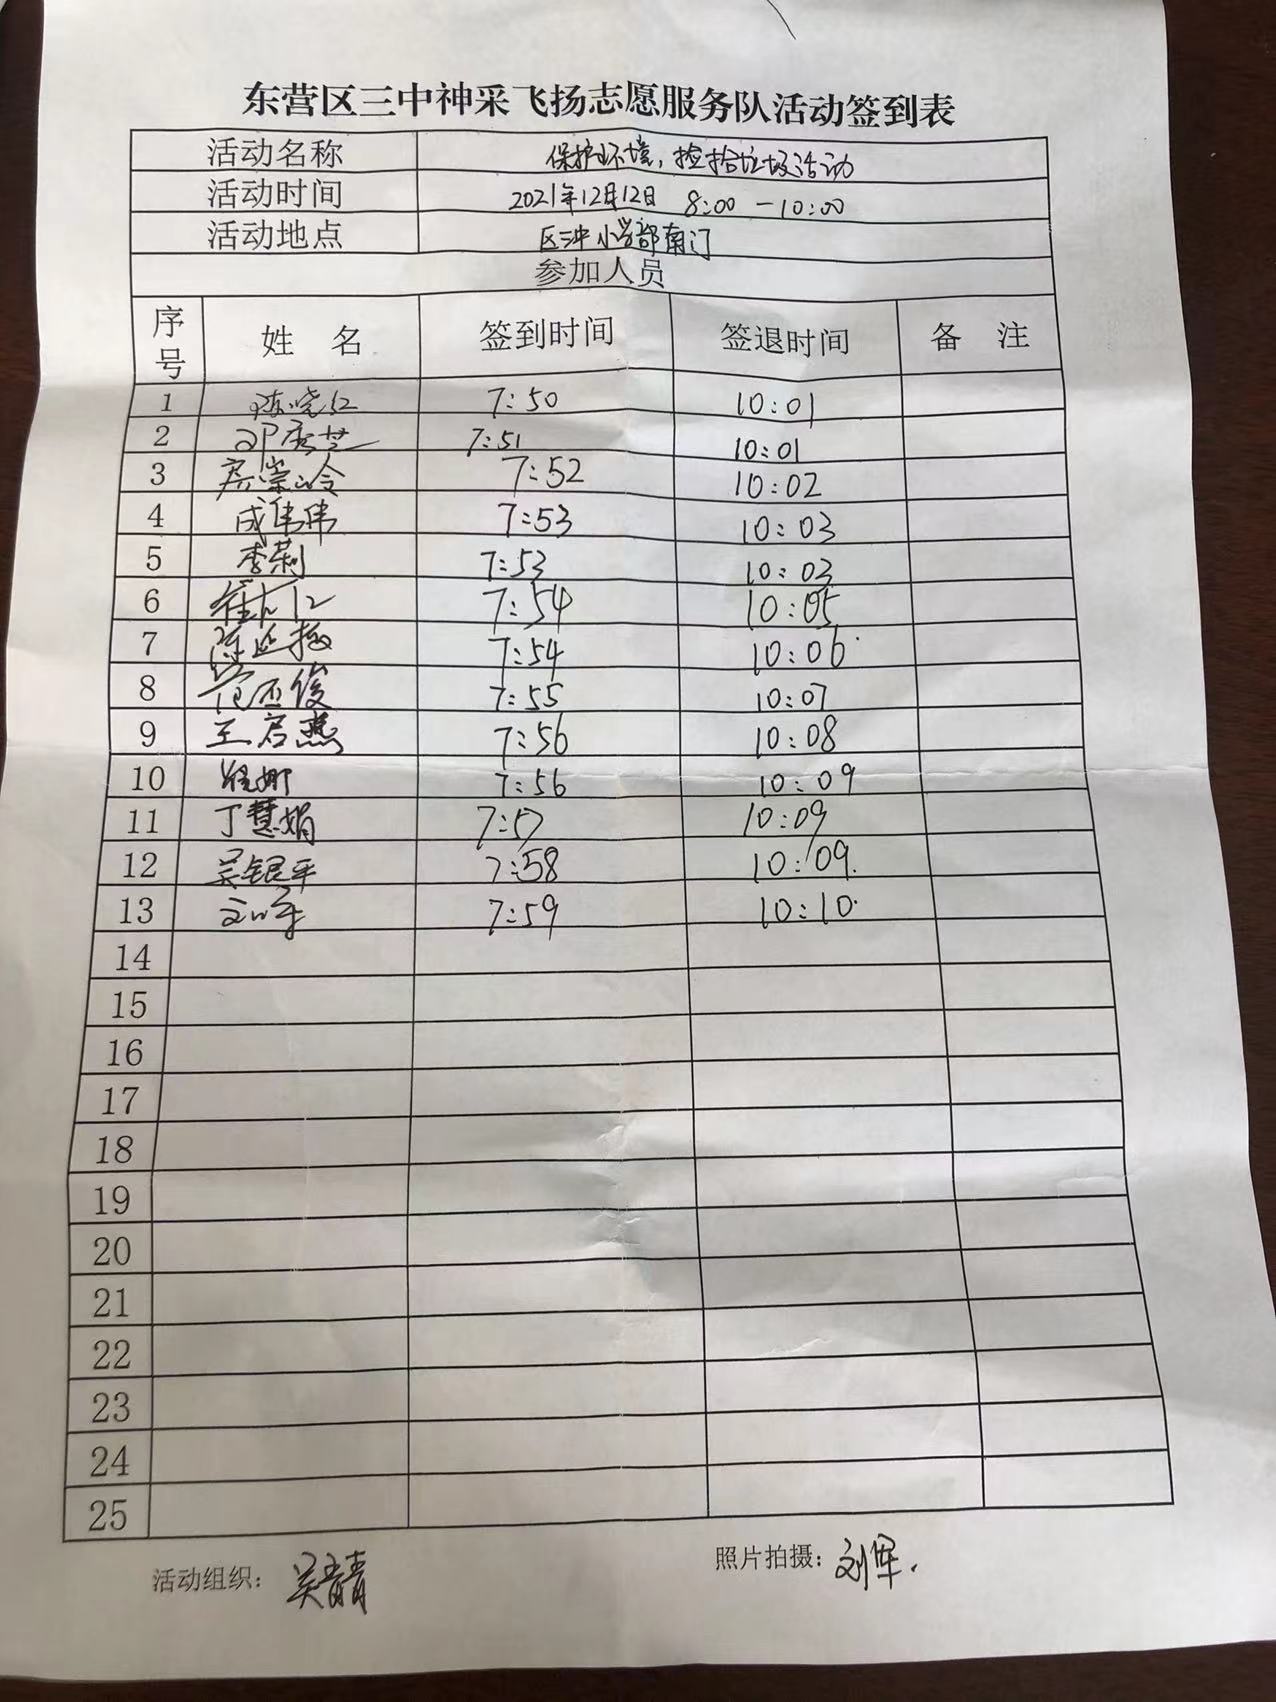 东营区三中神采飞扬志愿服务队活动签到表
活动名称 保护环境，捡拾垃圾活动
活动时间 2021年12月12日 8:00 —10:00
活动地点 区三中小学部南门
参加人员
序号 姓 名 签到时间 签退时间 备 注
1 陈晓红 7:50 10:01
2 邓秀芝 7:51 10:01
3 7:52 10:02
4 成伟伟 7:53 10:03
5 李莉 7:53 10:03
6 7:54 10:05
7 7:54 10:06
8 7:55 10:07
9 王启燕 7:56 10:08
10 7:56 10:09
11 丁慧娟 7:57 10:09
12 吴银平 7:58 10:09.
13 7:59 10:10.
14
15
16
17
18
19
20
21
22
23
24
25
活动组织： 吴青青 照片拍摄： 刘军.